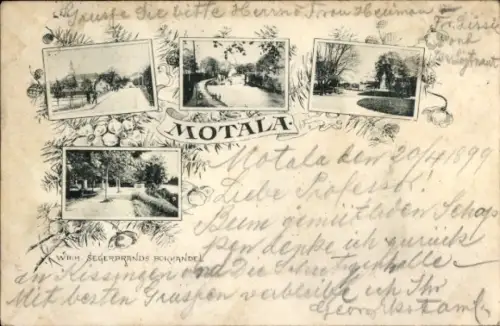 Grüsse Sie bitte Herrn & Frau Heuman
Fr. Lirse
und
MOTALA.
Motala den 20/4 1899
Liebe Professor!
Beim gemütlichen Schop
pen denke ich zurück
an Kissingen und Die Schützenhalle.
Mit besten Grussen verbleibe ich Ihr
Georg
WILH. SEGERBRANDS BOKHANDEL